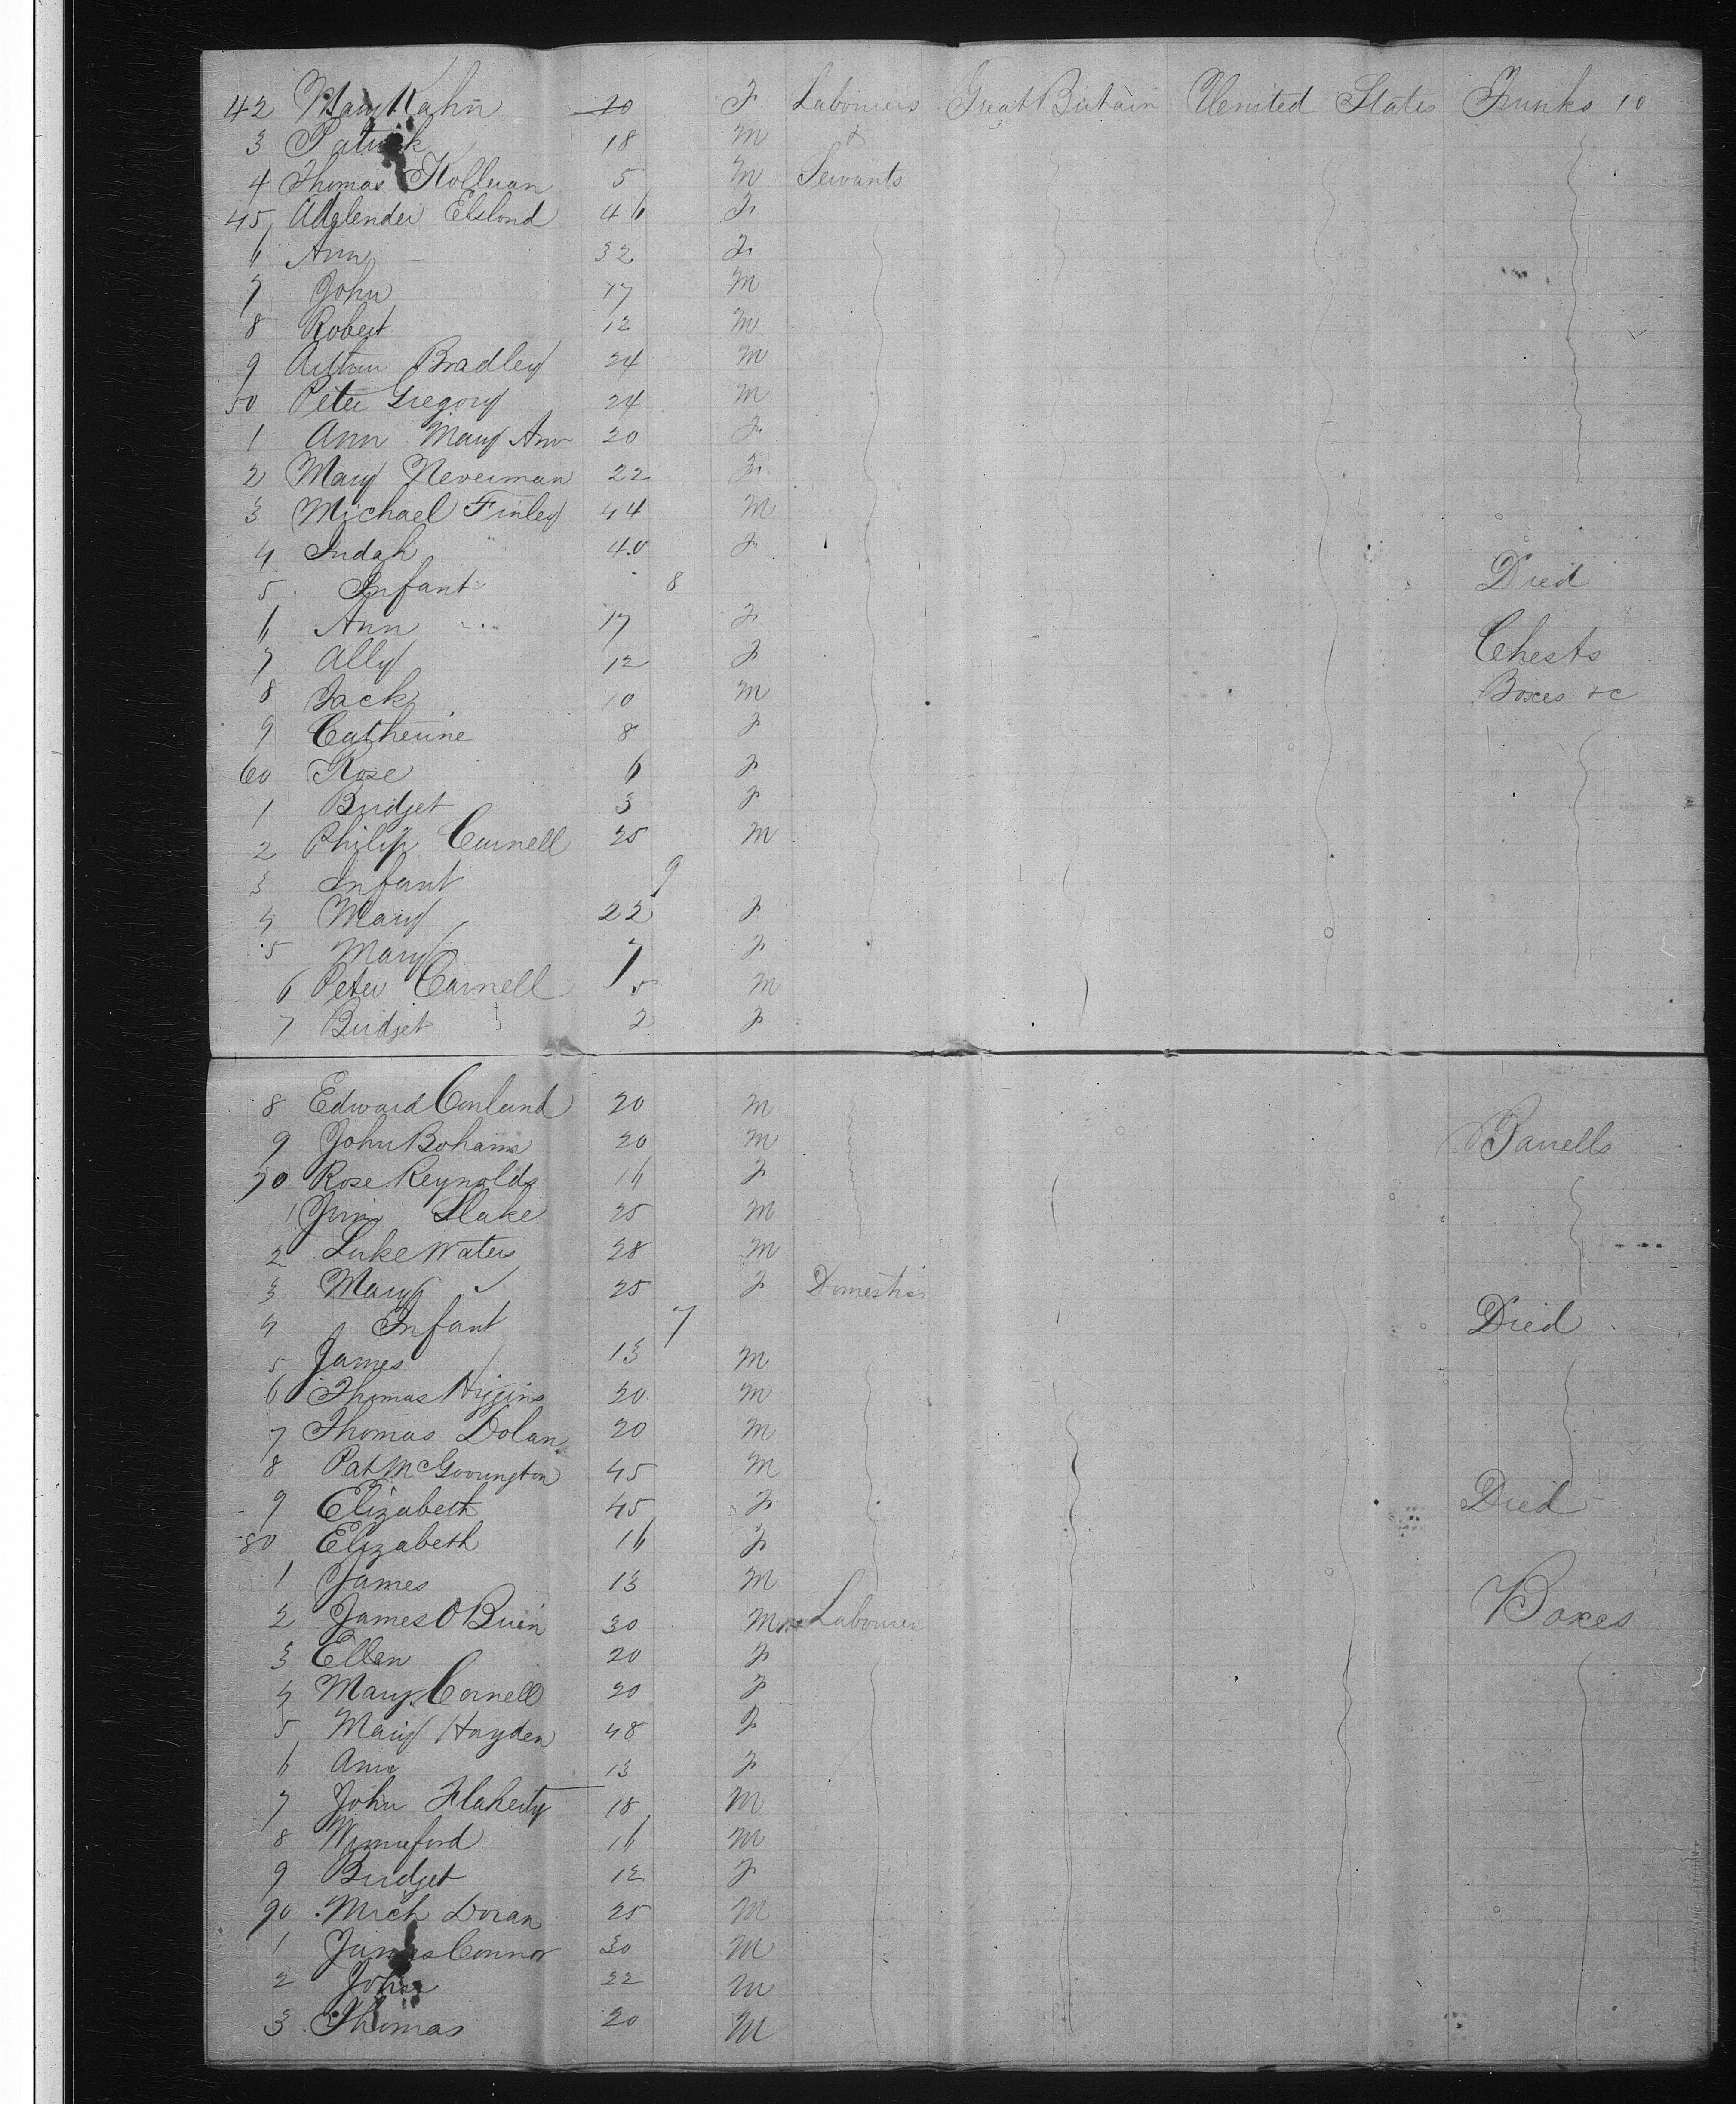 42 Mary Kahn 20 F Labourers Great Britain Uenited States Trunks 10
3 Patrick 18 M &
4 Thomas Holleran 5 M Servants
45 Elslond 46 F
6 Ann 32 F
7 John 17 M
8 Robert 12 M
9 Arthur Bradley 24 M
50 Peter Gregory 24 M
1 Ann Mary Ann 20 F
2 Mary Neverman 22 F
3 Michael Finley 44 M
4 Judah " 40 F
5 Infant 8 Died
6 Ann 17 F
7 Ally 12 F Chests
8 Jack 10 M Boxes &c
9 Catherine 8 F
60 Rose 6 F
1 Bridget 3 F
2 Philip Carnell 25 M
3 Infant 9
4 Mary 22 F
5 Mary 7 F
6 Peter Carnell 5 M
7 Bridget 2 F
8 Edward Conland 20 M
9 John Bohanna 20 M Barrells
70 Rose Reynolds 16 F
1 Jim Slake 25 M
2 Luke Waters 28 M
3 Mary 25 F Domestics
4 Infant 7 Died
5 James 13 M
6 Thomas Higgins 20 M
7 Thomas Dolan 20 M
8 Pat McGovrington 45 M
9 Elizabeth 45 F Died
80 Elizabeth 16 F
1 James 13 M
2 James O Brien 30 M Labourer Boxes
3 Ellen 20 F
4 Mary Cornell 20 F
5 Mary Hayden 48 F
6 Ann 13 F
7 John Flaherty 18 M
8 Winneford 16 M
9 Bridget 12 F
90 Mich Doran 25 M
1 James Connor 30 M
2 John 22 M
3 Thomas 20 M